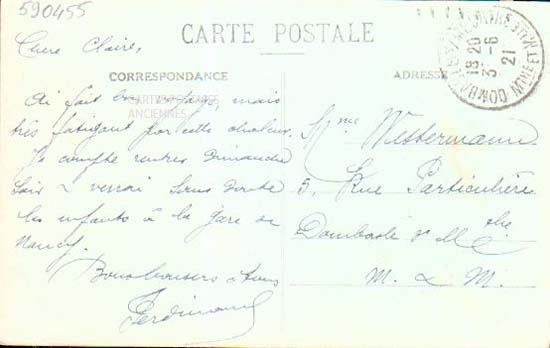 590455
CARTE POSTALE
CORRESPONDANCE
ADRESSE
CARTES POSTALES
ANCIENNES
DOMBASLE-S/-MEURTHE
MTHE-ET-MLLE
18 20
3 - 6
21
Chère Claire,
Ai fait bon voyage, mais
très fatigant par cette chaleur.
Je compte rentrer Dimanche
soir & verrai sans doute
les enfants à la gare de
Nancy.
Bons baisers à tous
Ferdinand
Mme Westermann
5, Rue Particulière
Dombasle s/ Mthe
M. & M.